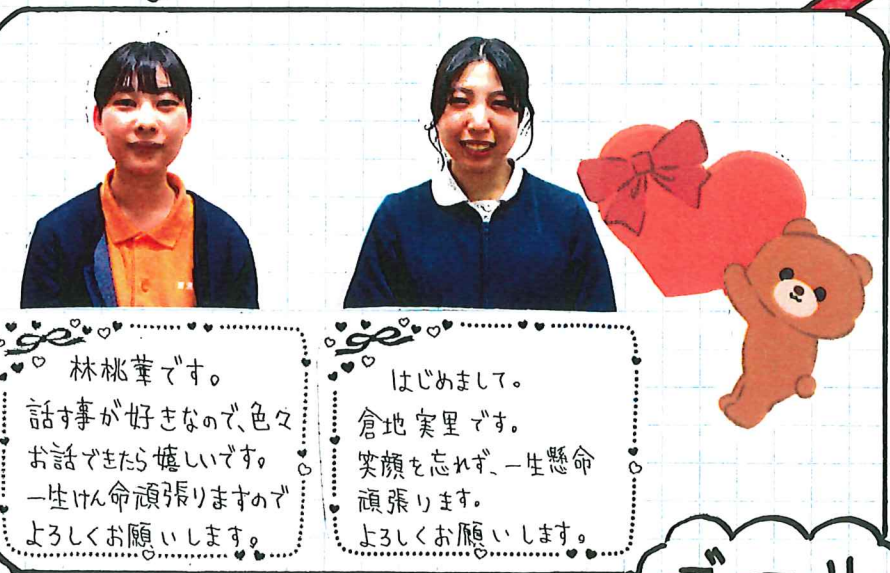 林桃葉です。
話す事が好きなので、色々
お話できたら嬉しいです。
一生けん命頑張りますので
よろしくお願いします。
はじめまして。
倉地実里です。
笑顔を忘れず、一生懸命
頑張ります。
よろしくお願いします。